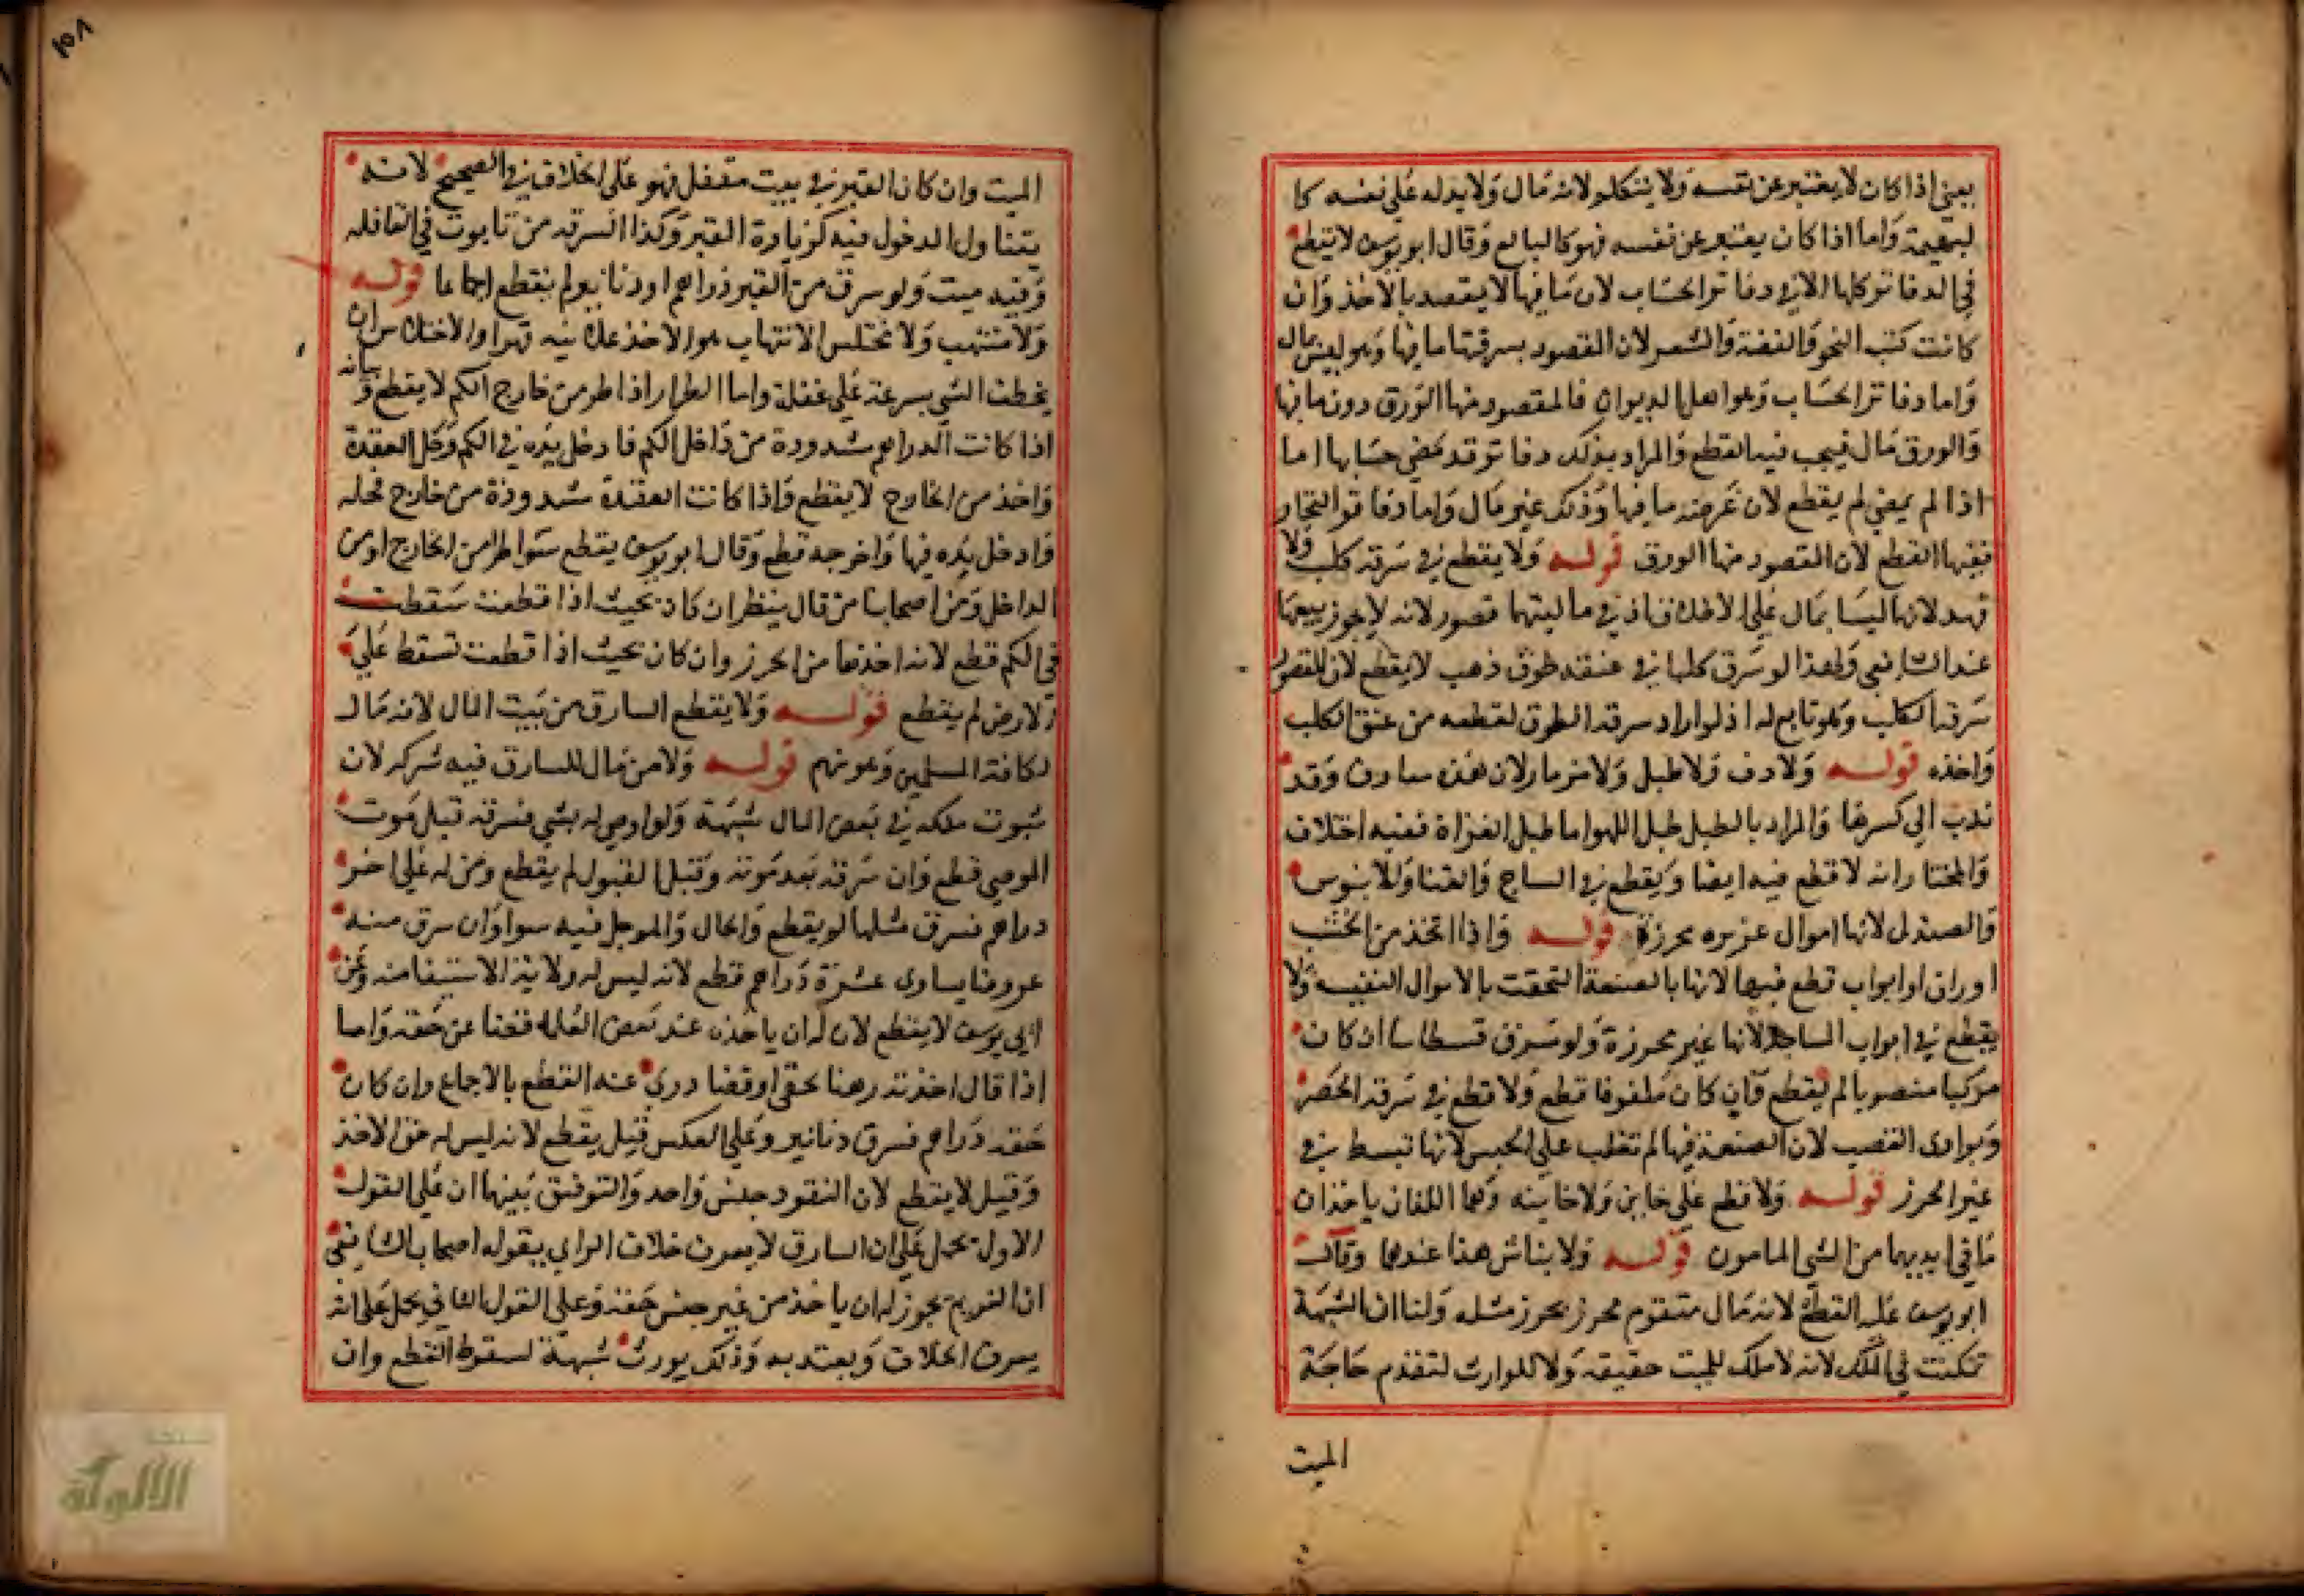 يعني اذا كان لا يعتبر عن نفسه ولا يتكلم لانه مال ولا يد له على نفسه كا
لبهيمة واما اذا كان يعتبر عن نفسه فهو كالبالغ وقال ابو يوسف لا يقطع
في الدفاتر كلها الا في دفاتر الحساب لان ما فيها لا يقصد بالاخذ وان
كانت كتب النحو والفقه والشعر لان المقصود بسرقتها ما فيها وهو ليس مال
واما دفاتر الحساب وهو اهل الديوان فالمقصود منها الورق دون ما فيها
والورق مال فيجب فيه القطع والمراد بذلك دفاتر قد مضي حسابها اما
اذا لم يمض لم يقطع لان غرضه ما فيها وذلك غير مال واما دفاتر التجار
ففيها القطع لان المقصود منها الورق قوله ولا يقطع في سرقة كلب ولا
فهد لانها ليسا بمال على الاطلاق اذ في ماليتهما قصور لانه لا يجوز بيعهما
عند الشافعي ولهذا لو سرق كلبا في عنقه طوق ذهب لا يقطع لان المقصود
سرقة الكلب وهو تابع له اذ لو اراد سرقة الطوق لقطعه من عنق الكلب
واخذه قوله ولا دف ولا طبل ولا مزمار لان هذه معازف وقد
ندب الي كسرها والمراد بالطبل طبل اللهو اما طبل الغزاة ففيه اختلاف
والمختار انه لا قطع فيه ايضا ويقطع في الساج والقنا والابنوس
والصندل لانها اموال عزيزه محرزة قوله واذا اتخذ من الخشب
اوراق او ابواب قطع فيها لانها بالصنعة التحقت بالاموال النفيسه ولا
يقطع في ابواب المساجد لانها غير محرزة ولو سرق فسطاسا ان كان
مركبا منصوبا لم يقطع وان كان ملفوفا قطع ولا قطع في سرقة الحصر
وبواري القصب لان الصنعة فيها لم تغلب على الجنس لانها تبسط في
غير الحرز قوله ولا قطع على خاين ولا خاينه وهما اللذان ياخذان
ما في ايديهما من الشي المامون قوله ولا نباش هذا عندهما وقال
ابو يوسف عليه القطع لانه مال متقوم محرز بحرز مثله ولنا ان الشبهة
تمكنت في الملك لانه لا ملك للميت حقيقه ولا للوارث لتقدم حاجة
الميت
٢٥٨
الميت وان كان القبر في بيت مقفل فهو على الخلاف في الصحيح لانه
يتناول الدخول فيه لزيارة القبر وكذا السرقه من تابوت في القافله
وفيه ميت ولو سرق من القبر دراهم او دنانير لم يقطع اجماعا قوله
ولا منتهب ولا مختلس الانتهاب هو الاخذ علانيه قهرا والاختلاس ان
يخطف الشي بسرعة على غفلة واما الطرار اذا طر من خارج الكم لا يقطع وبيانه
اذا كانت الدراهم مشدودة من داخل الكم فادخل يده في الكم وحل العقدة
واخذ من الخارج لا يقطع واذا كانت العقدة مشدودة من خارج فحله
وادخل يده فيها واخرجه قطع وقال ابو يوسف يقطع سوا طر من الخارج او من
الداخل ومن اصحابنا من قال ينظر ان كان بحيث اذا قطعت سقطت
في الكم قطع لانه اخذها من الحرز وان كان بحيث اذا قطعت تسقط علي
الارض لم يقطع قوله ولا يقطع السارق من بيت المال لانه مال
لكافة المسلمين وهو منهم قوله ولا من مال للسارق فيه شركه لان
ثبوت ملكه في بعض المال شبهة ولو اوصي له بشي فسرقه قبل موت
الموصي قطع وان سرقه بعد موته وقبل القبول لم يقطع ومن له على اخر
دراهم فسرق مثلها لم يقطع والحال والموجل فيه سوا وان سرق منه
عروضا يساوي عشرة دراهم قطع لانه ليس له ولاية الاستيفا منه وعن
ابي يوسف لا يقطع لان له ان ياخذه عند بعض العلما قضا عن حقه واما
اذا قال اخذته رهنا بحقي او قضا دري عنه القطع بالاجماع وان كان
حقه دراهم فسرق دنانير وعلي العكس قيل يقطع لانه ليس له حق الاخذ
وقيل لا يقطع لان النقود جنس واحد والتوفيق بينهما ان على القول
الاول يحمل على ان السارق لا يعرف خلاف الراي يقوله اصحاب الشافعي
ان الغريم يجوز له ان ياخذ من غير جنس حقه وعلى القول الثاني يحمل على انه
يعرف الخلاف ويعتد به وذلك يورث شبهة لسقوط القطع وان
الألوكة